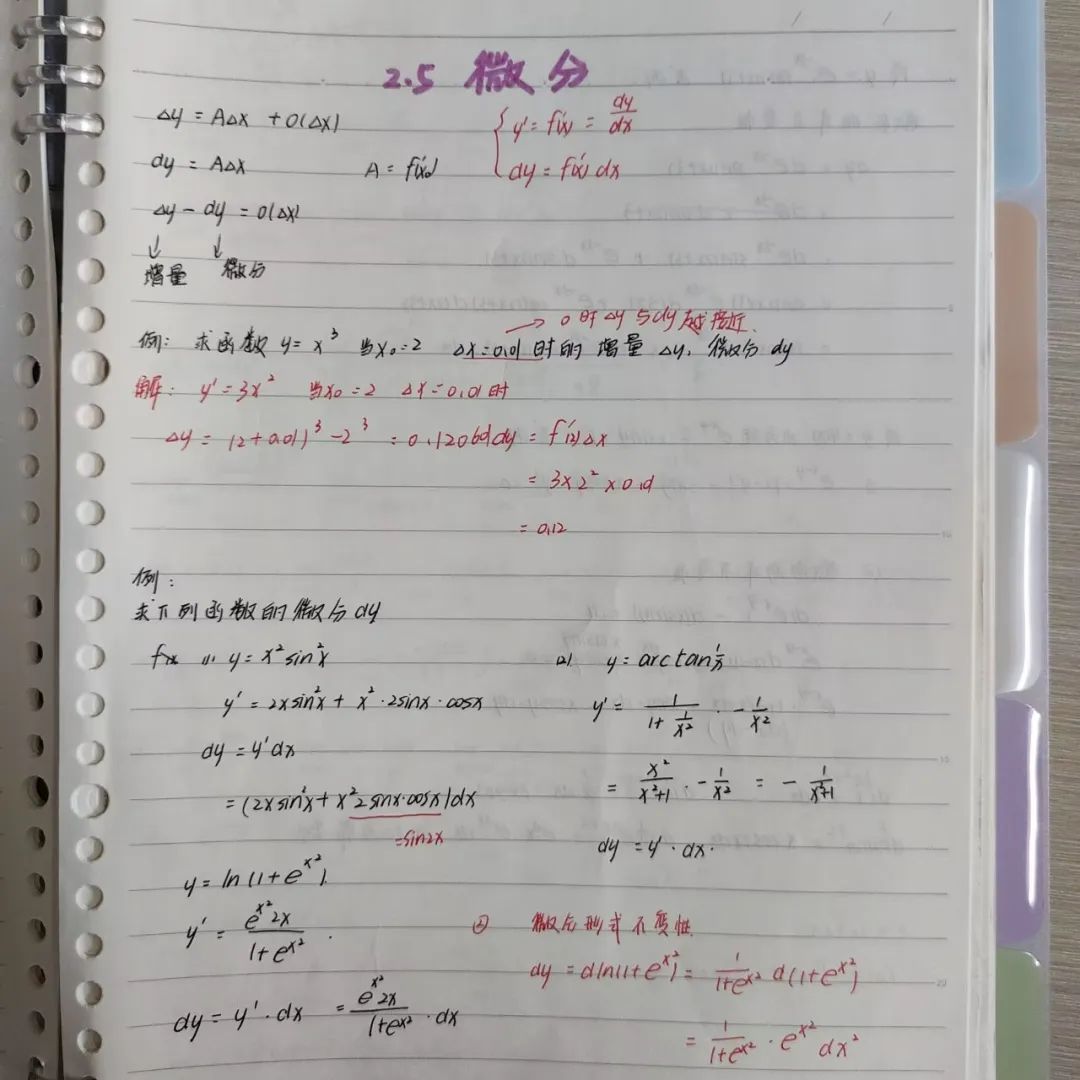 2.5 微分
Δy = AΔx + o(Δx)
{ y' = f'(x) = dy/dx
dy = AΔx    A = f'(x₀)
dy = f'(x) dx
Δy - dy = o(Δx)
↓ ↓
增量 微分
→ 0 时 Δy 与 dy 越接近.
例: 求函数 y = x³ 当x₀=2 Δx=0.01 时的 增量 Δy, 微分 dy
解: y' = 3x² 当x₀=2 Δx=0.01时
Δy = (2+0.01)³ - 2³ = 0.120601 dy = f'(2)Δx
= 3×2²×0.01
= 0.12
例:
求下列函数的微分dy
(1) y = x²sin²x
y' = 2xsin²x + x²·2sinx·cosx
dy = y'dx
= (2xsin²x + x²2sinx·cosx)dx
=sin2x
(2) y = arctan 1/x
y' = 1/(1+1/x²) · -1/x²
= x²/(x²+1) · -1/x² = -1/(x²+1)
dy = y'·dx.
y = ln(1+e^x²)
y' = e^x²2x/(1+e^x²).
dy = y'·dx = e^x²2x/(1+e^x²)·dx
② 微分形式不变性
dy = dln(1+e^x²) = 1/(1+e^x²) d(1+e^x²)
= 1/(1+e^x²) · e^x² dx²